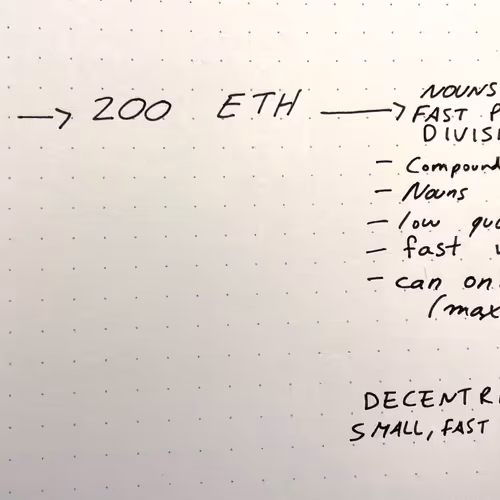 → 200 ETH → NOUNS
FAST P
DIVIS
- Compound
- Nouns
- low quo
- fast v
- can on
(max
DECENTR
SMALL, FAST